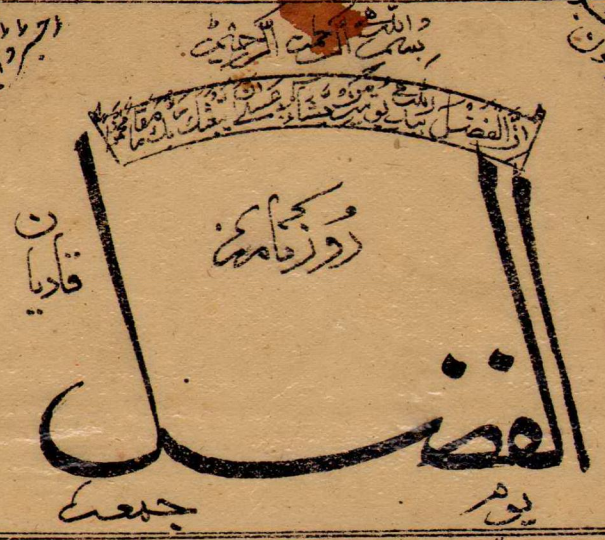 بسم اللہ الرحمن الرحیم
ان الفضل بید اللہ یوتیہ من یشاء عسیٰ ان یبعثک ربک مقاما محمودا
روزنامہ
قادیان
الفضل
یوم جمعہ